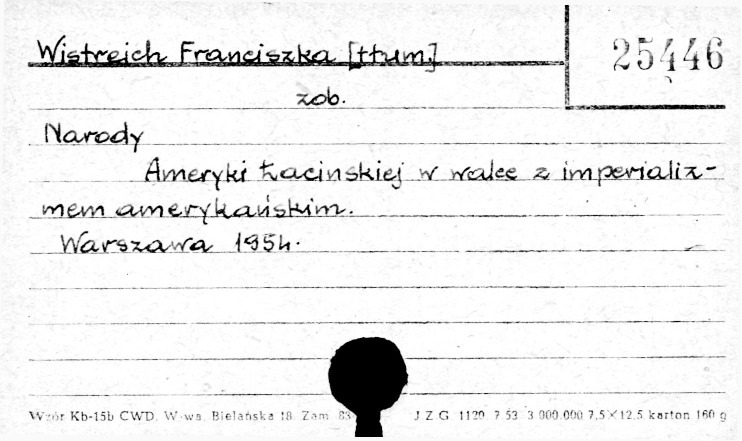 Wistreich Franciszka [tłum.]
25446
zob.
Narody
Ameryki Łacinskiej w walce z imperializ-
mem amerykańskim.
Warszawa 1954.
Wzór Kb-15b CWD, W-wa, Bielańska 18 Zam. 83 J.Z.G. 1120 7.53 3.000.000 7,5×12,5 karton 160 g